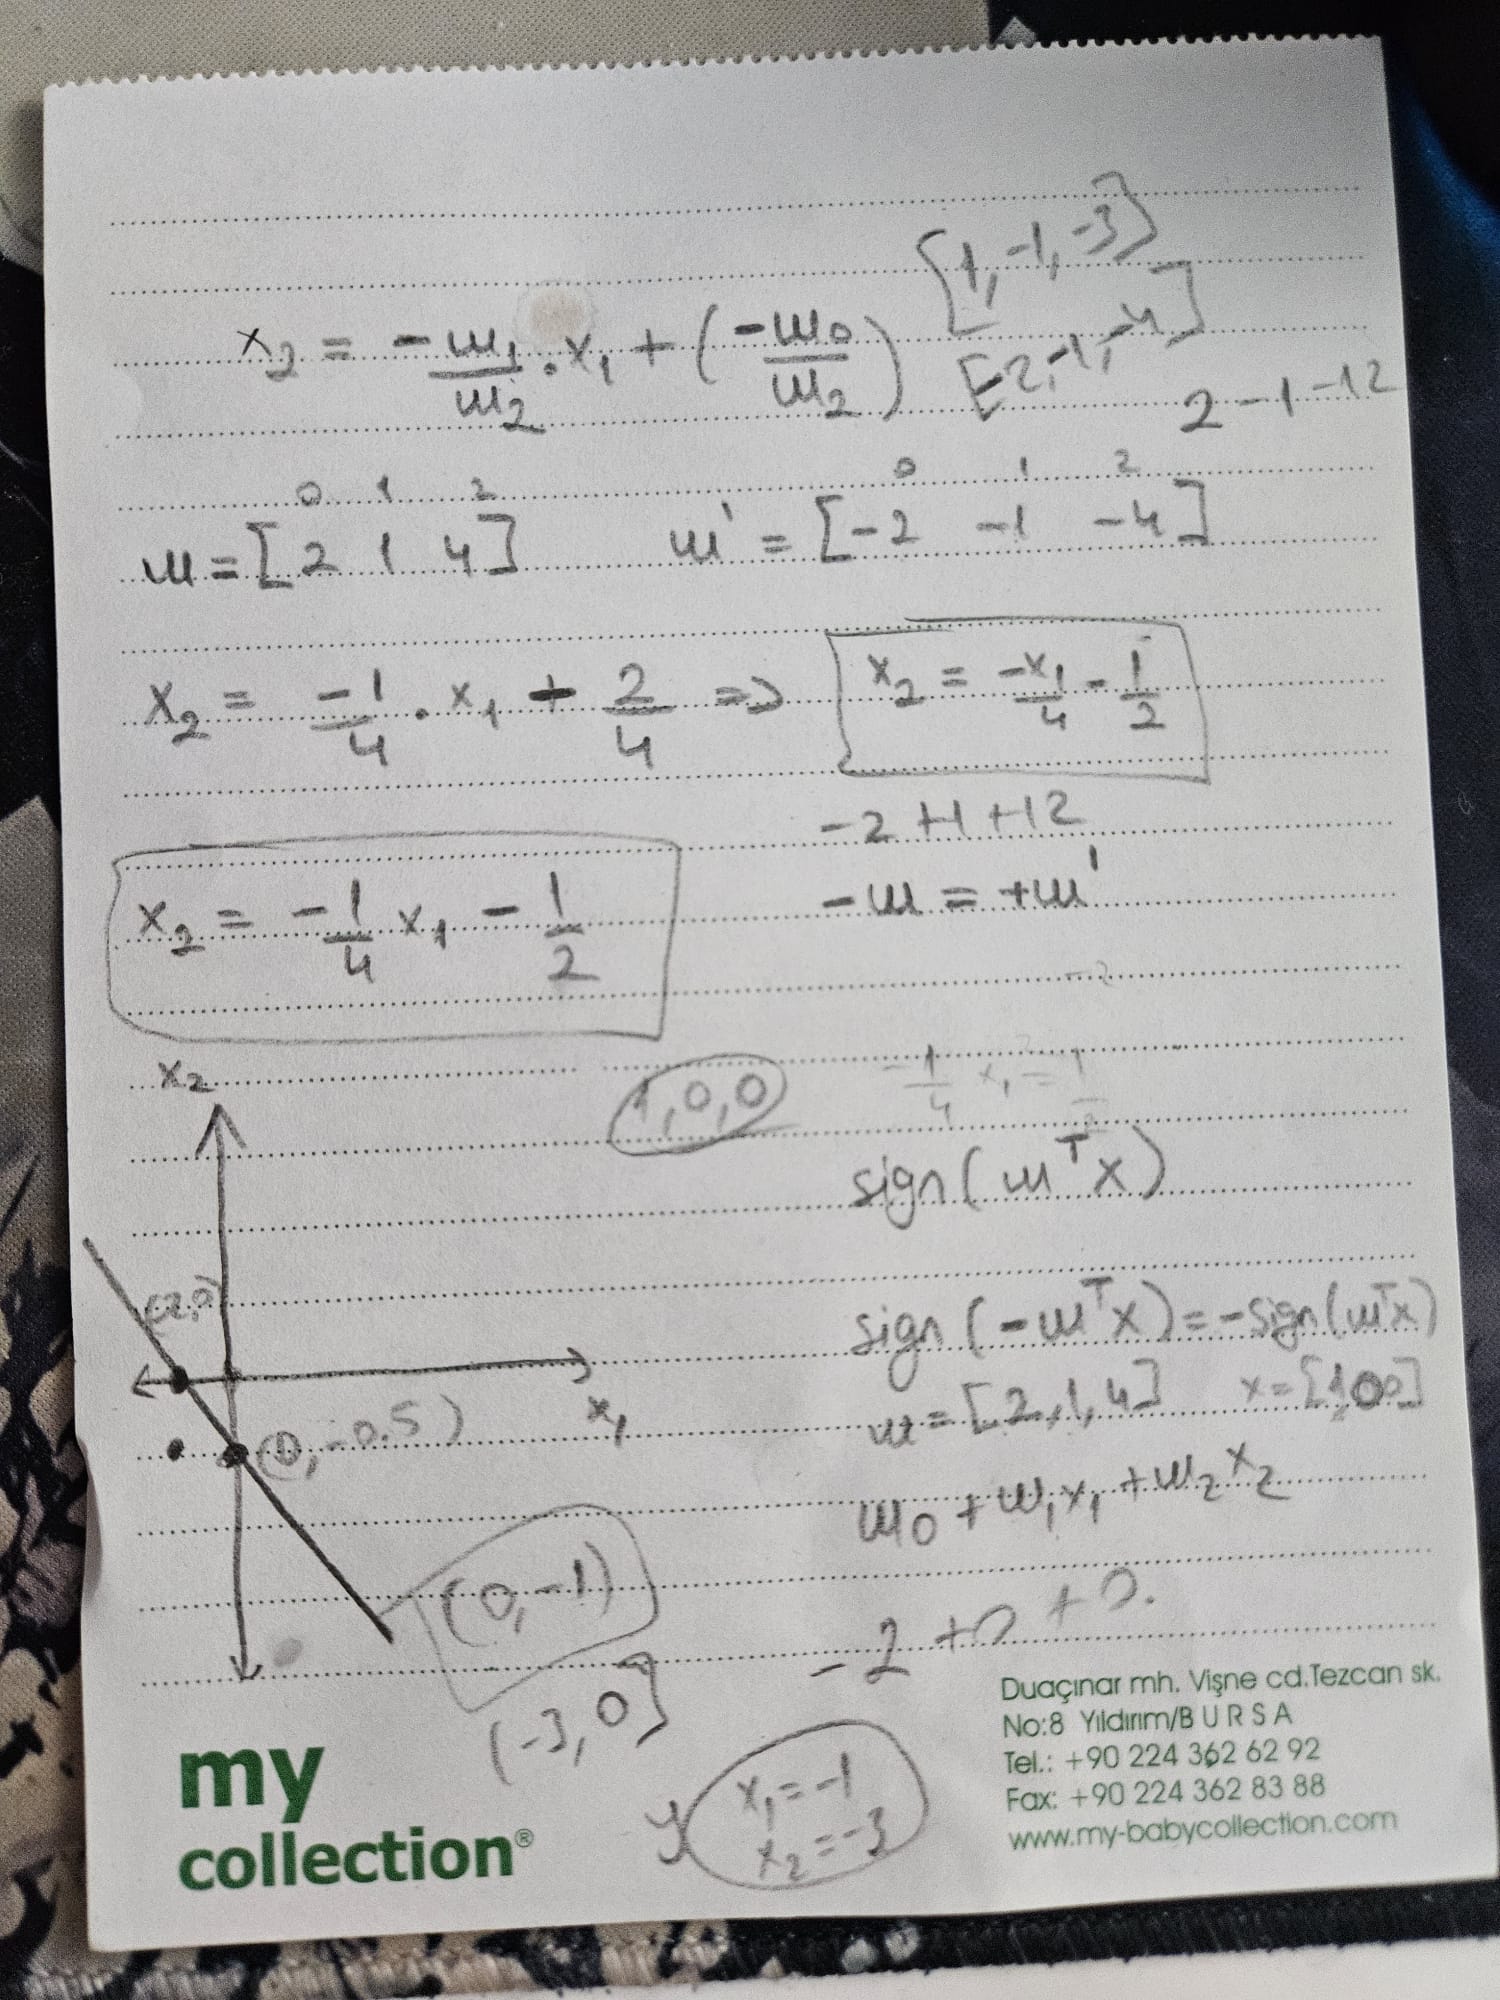 [1, -1, -3]
x₂ = -w₁/w₂ . x₁ + (-w₀/w₂)
[-2, -1, -4]
2 - 1 - 12
0 1 2
w = [2 1 4]
0 1 2
w' = [-2 -1 -4]
x₂ = -1/4 . x₁ + 2/4 =>
x₂ = -x₁/4 - 1/2
-2 +1 +12
x₂ = -1/4 x₁ - 1/2
-w = +w'
x₂
1, 0, 0
-1/4 x₁ =
sign(wᵀx)
sign(-wᵀx) = -sign(wᵀx)
x₁
w = [2, 1, 4] x = [1 0 0]
(0, -0.5)
w₀ + w₁x₁ + w₂x₂
(0, -1)
-2 + 0 + 0.
(-3, 0]
x₁ = -1
x₂ = -3
my
collection®
Duaçınar mh. Vişne cd.Tezcan sk.
No:8 Yıldırım/B U R S A
Tel.: +90 224 362 62 92
Fax: +90 224 362 83 88
www.my-babycollection.com